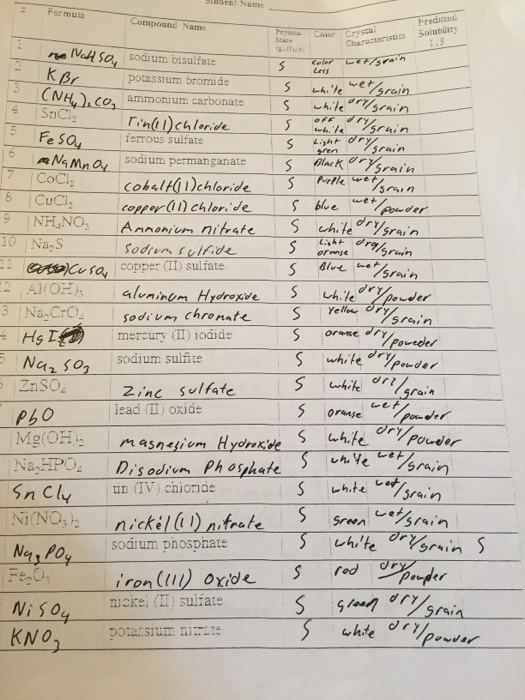 Student Name
# Formula Compound Name Physical State (g/l/s) Color Crystal Characteristics Predicted Solubility I.S
1 NaHSO4 sodium bisulfate S Color Less wet/grain
2 KBr potassium bromide S white wet/grain
3 (NH4)2CO3 ammonium carbonate S white dry/grain
4 SnCl2 Tin(II)chloride S off white dry/grain
5 FeSO4 ferrous sulfate S Light green dry/grain
6 NaMnO4 sodium permanganate S Black dry/grain
7 CoCl2 cobalt(II)chloride S Purple wet/grain
8 CuCl2 copper(II)chloride S blue wet/powder
9 NH4NO3 Ammonium nitrate S white dry/grain
10 Na2S Sodium sulfide S Light orange dry/grain
11 CuSO4 copper (II) sulfate S Blue wet/grain
2 Al(OH)3 aluminum Hydroxide S white dry/powder
3 Na2CrO4 sodium chronate S Yellow dry/grain
4 HgI mercury (II) iodide S orange dry/poweder
5 Na2SO3 sodium sulfite S white dry/powder
ZnSO4 Zinc sulfate S white dry/grain
PbO lead (II) oxide S orange wet/powder
Mg(OH)2 magnesium Hydroxide S white dry/powder
Na2HPO4 Disodium Phosphate S white wet/grain
SnCl4 tin (IV) chloride S white wet/grain
Ni(NO3)2 nickel(II) nitrate S green wet/grain
Na3PO4 sodium phosphate S white dry/grain S
Fe2O3 iron(III) oxide S red dry/powder
NiSO4 nickel (II) sulfate S green dry/grain
KNO3 potassium nitrate S white dry/powder